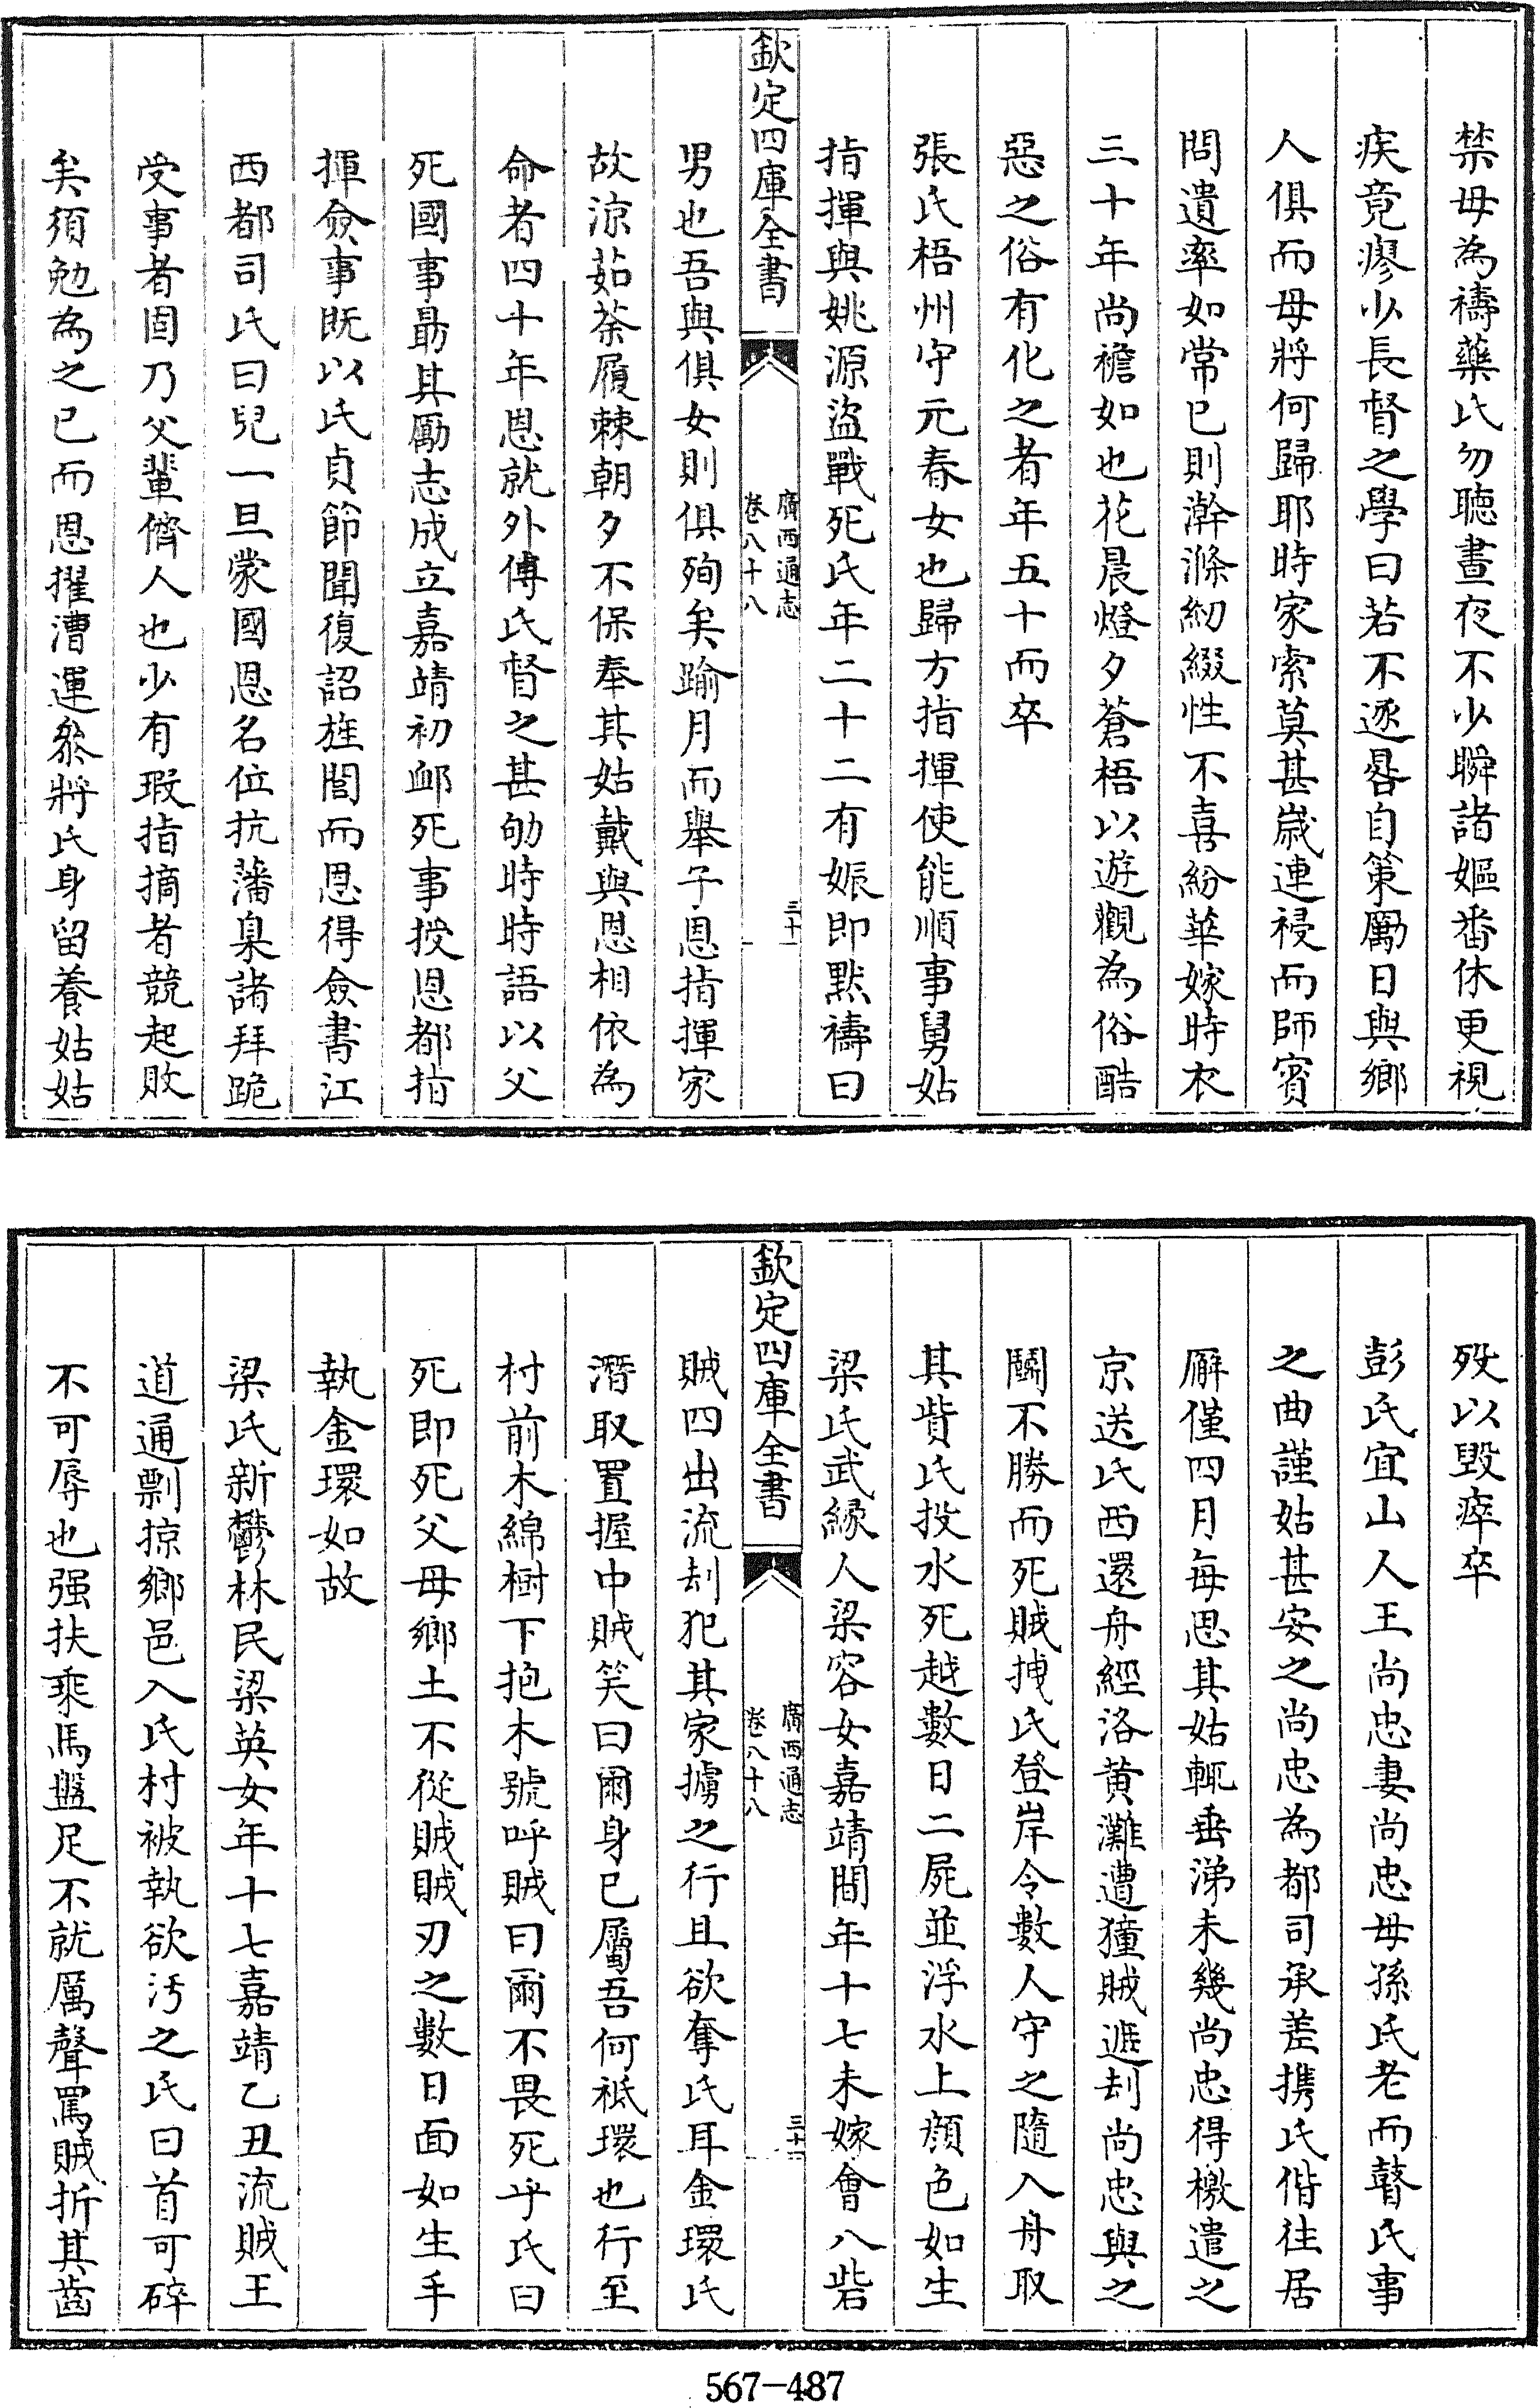 禁母為禱藥氏勿聽晝夜不少瞬諸嫗番休更視
疾竟瘳少長督之學曰若不逐晷自策厲日與鄉
人俱而母將何歸耶時家索莫甚嵗連祲而師賓
問遺率如常已則澣滌紉綴性不喜紛華嫁時衣
三十年尚襜如也花晨燈夕蒼梧以遊觀為俗酷
惡之俗有化之者年五十而卒
張氏梧州守元春女也歸方指揮使能順事舅姑
指揮與姚源盜戰死氏年二十二有娠即黙禱曰
欽定四庫全書
廣西通志
卷八十八
三十一
男也吾與俱女則俱殉矣踰月而舉子恩指揮家
故涼茹荼履棘朝夕不保奉其姑戴與恩相依為
命者四十年恩就外傅氏督之甚劬時時語以父
死國事勗其勵志成立嘉靖初䘏死事授恩都指
揮僉事既以氏貞節聞復詔旌閭而恩得僉書江
西都司氏曰兒一旦蒙國恩名位抗藩臬諸拜跪
受事者固乃父輩儕人也少有瑕指摘者競起敗
矣須勉為之已而恩擢漕運叅將氏身留養姑姑
歿以毀瘁卒
彭氏宜山人王尚忠妻尚忠母孫氏老而瞽氏事
之曲謹姑甚安之尚忠為都司承差攜氏偕往居
廨僅四月每思其姑輒垂涕未幾尚忠得檄遣之
京送氏西還舟經洛黄灘遭獞賊遮刦尚忠與之
鬭不勝而死賊拽氏登岸令數人守之隨入舟取
其貲氏投水死越數日二屍並浮水上顔色如生
梁氏武緣人梁容女嘉靖間年十七未嫁會八砦
欽定四庫全書
廣西通志
卷八十八
三十一
賊四出流刦犯其家擄之行且欲奪氏耳金環氏
潛取置握中賊笑曰爾身已屬吾何祗環也行至
村前木綿樹下抱木號呼賊曰爾不畏死乎氏曰
死即死父母鄉土不從賊賊刃之數日面如生手
執金環如故
梁氏新鬱林民梁英女年十七嘉靖乙丑流賊王
道通剽掠鄉邑入氏村被執欲汚之氏曰首可碎
不可辱也强扶乘馬盤足不就厲聲罵賊折其齒
567-487